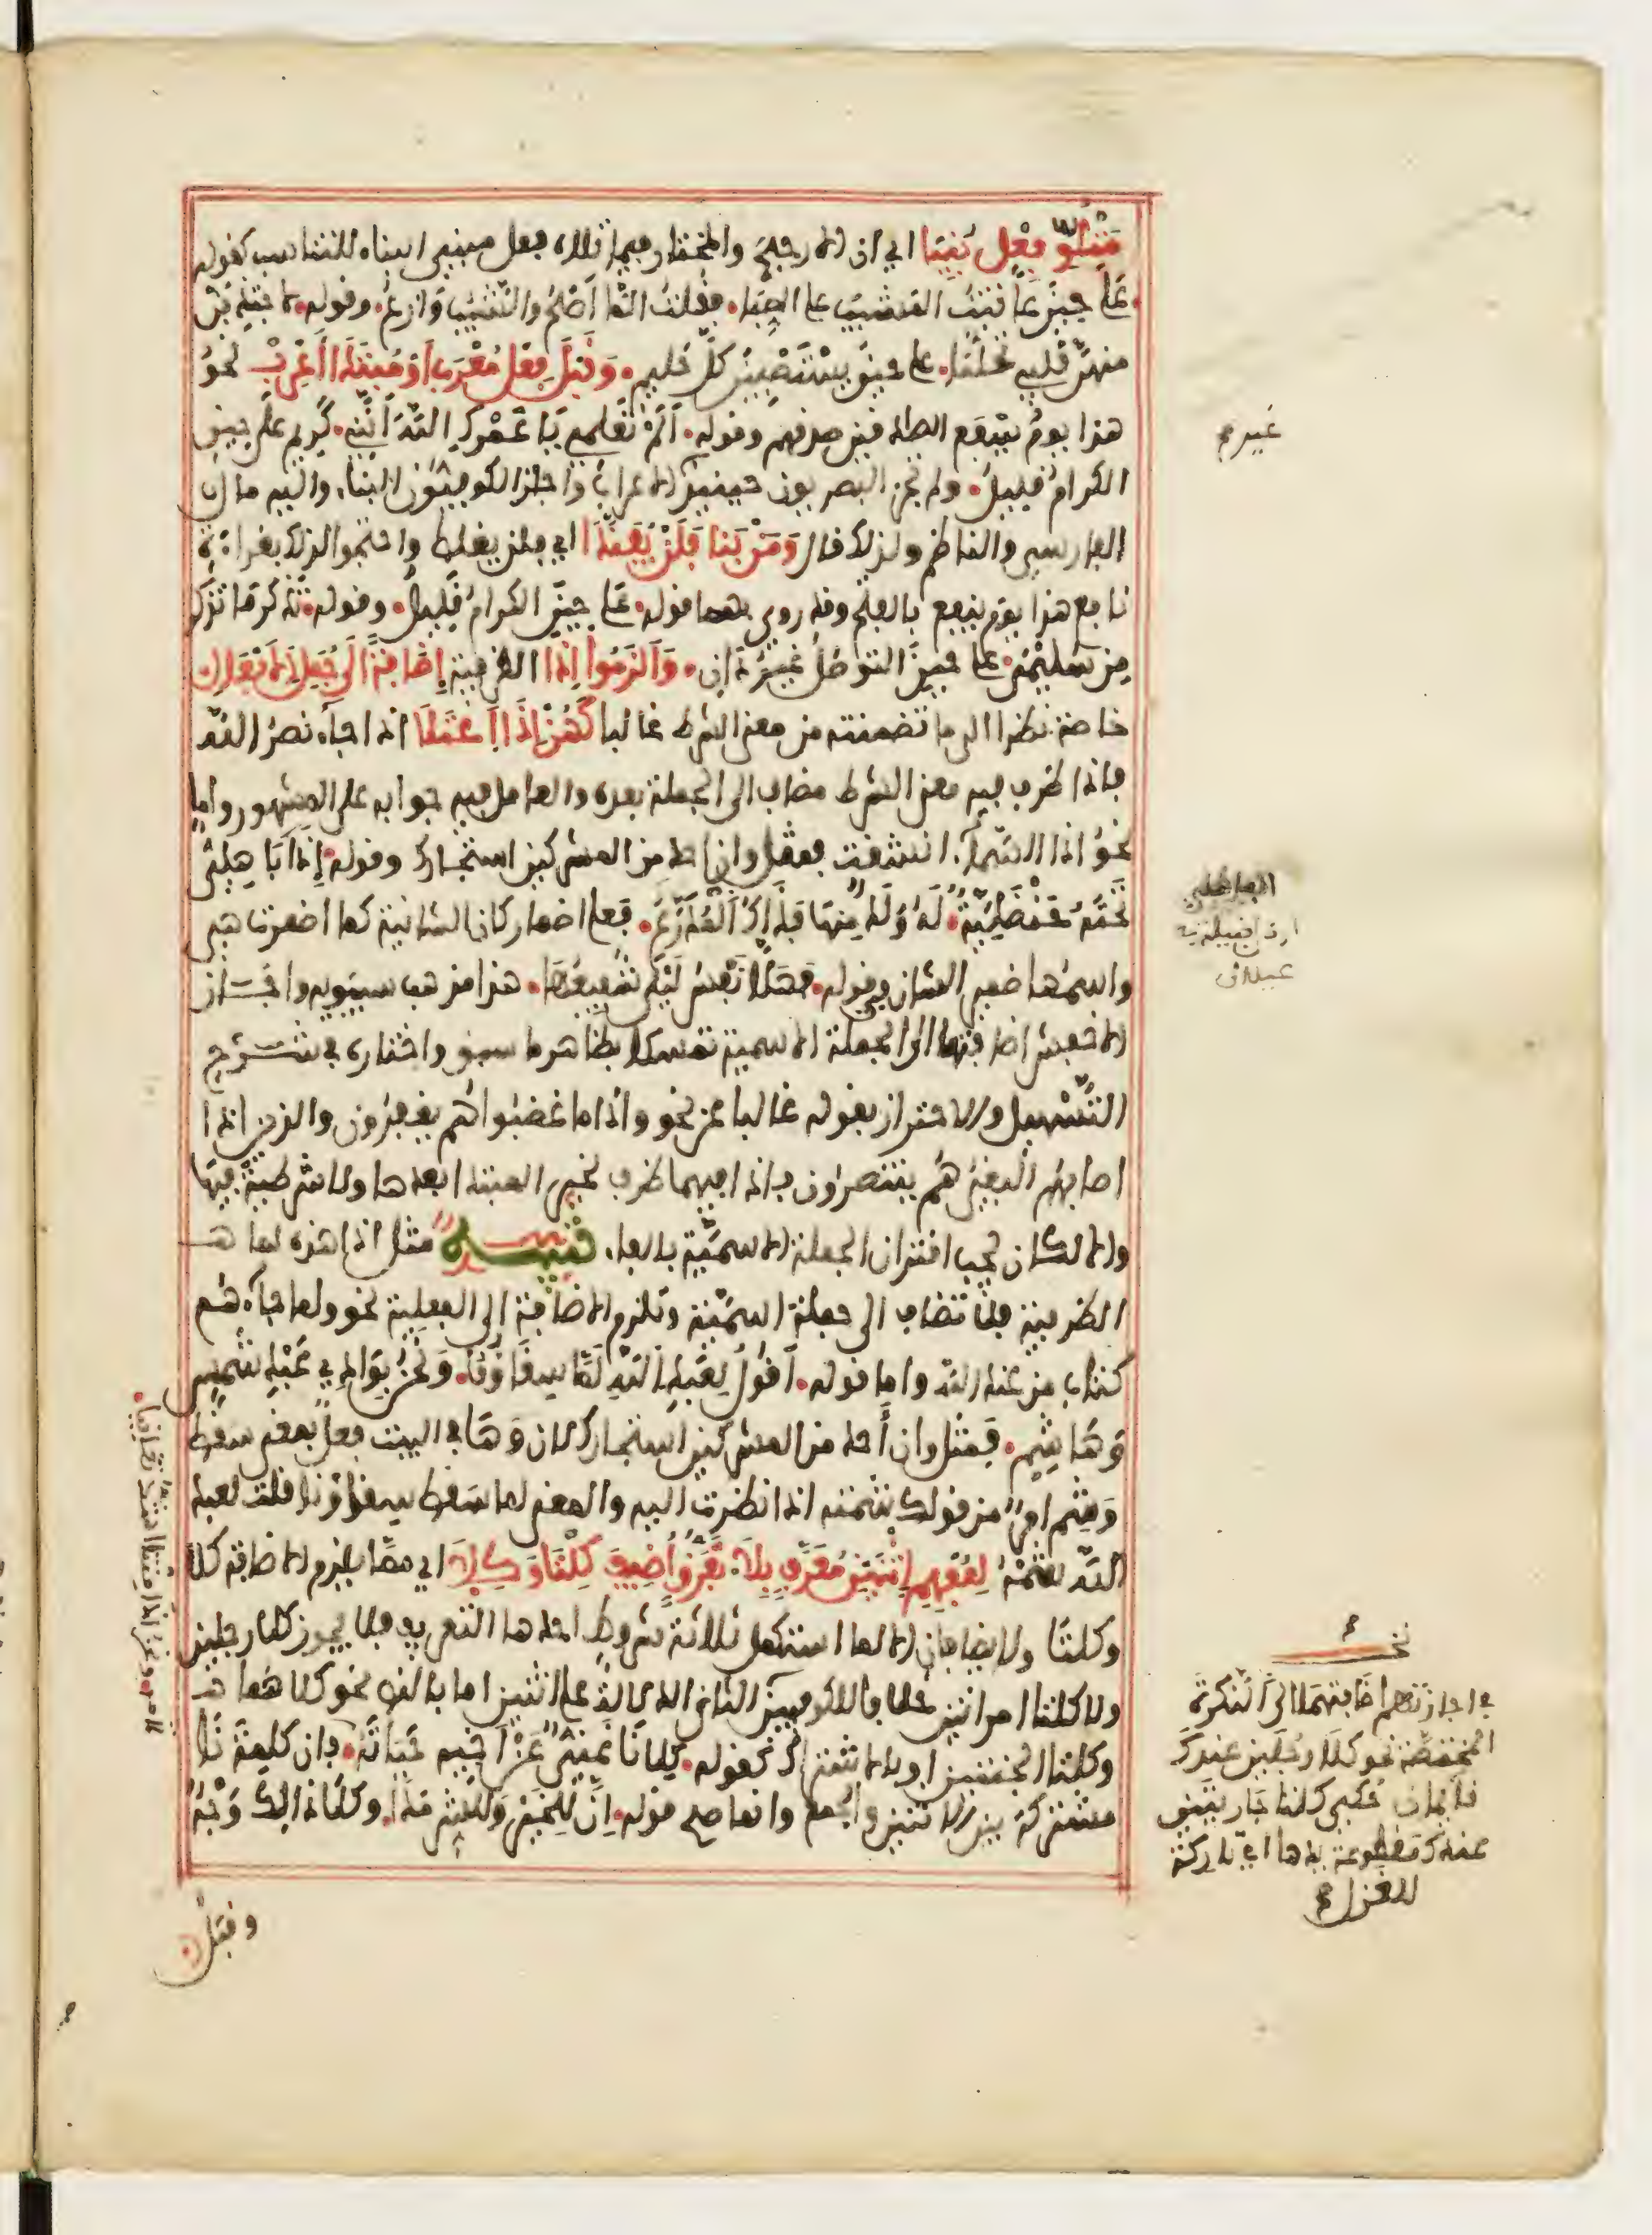 مَتْلُوِّ فِعْل بُنِيَا اي ان الارجح والمختار فيما تلاه فعل مبني البناء للتناسب كقوله
على حينَ عاتبت المشيب على الصِّبا فقلت الما اصْحُ والشيب وازع وقوله لاجتذبن
منهن قلبي تحلما على حين يستصبين كل حليم وَقَبْلَ فِعْل مُعْرَبٍ اَوْ مُبْتَدَا اَعْرِبْ نحوُ
هذا يومُ ينفع الصادقين صدقهم وقوله اَلَمْ تعلمي يا عمرك اللّه اَنني كريم على حينِ
الكرامُ قليلُ ولم يجز البصريون حينئذ الا عراب واجاز الكوفيون البناء واليه مال
الفارسي والناظم ولذلك قال وَمَنْ بَنا فَلَنْ يُفَنَّدَا اي فلن يغلط واحتجوا لذلك بقراءة
نافع هذا يومَ ينفع بالفتح وقد روي بهما قوله على حين الكرامُ قليلُ وقوله تذكر ما تذكر
من سليمى على حينَ التواصلُ غيرُ دَانِ وَاَلزَمُوا اِذَا الظرفية اِضَافَةً الَى جُمَلِ الافْعَالِ
خاصة نظرا الى ما تضمنته من معنى الشرط غالبا كَهُنْ اِذَا اعْتَلَا اذا جاء نصر اللّه
فاذا ظرف فيه معنى الشرط مضاف الى الجملة بعده والعامل فيه جوابه على المشهور واما
نحوُ اذا السّماء انشقت فمثل وان احد من المشركين استجارك وقوله اِذَا بَا هِلِيٌّ
تحتَهُ حَنْظَلِيَّةٌ لَهُ وَلَدٌ مِنهَا فذَاكَ الْمُذَرَّعُ فعلى اضمار كان الشانية كما اضمرت هي
واسمُها ضمير الشان في قوله فهلّا نفسُ ليلى شفيعُها هذا مذهب سيبويه واجاز
الاخفش اضافتها الى الجملة الاسمية تمسكا بظاهر ما سبق واختاره في شرح
التّسهيل والاحتراز بقوله غالبا عن نحو واذا ما غضبوا هم يغفرون والذين اذا
اصابهم البغيُ هُم ينتصرون فاذا فيهما ظرف لخبر المبتدا بعدها ولا شرطية فيها
والا لكان يجب اقتران الجملة الاسميّة بالفاء تنبيه مثل اذا هذه لما
الظرفية فلا تضاف الى جملة اسميّة وتلزم الاضافة الى الفعلية نحو ولما جاءهم
كتاب من عند اللّه واما قوله اَقولُ لِعَبدِ اللّهِ لَمّا سِقَاؤنا وَنَحْنُ بِوَادِي عَبْدِ شَمْسِ
وَهَاشِمِ فمثل وان أَحد من المشركين استجارك لان وَهَا في البيت فعل بمعنى سقط
وَشِم امرٌ من قولك شمته اذا نظرت اليه والمعنى لما سقط سقاؤنا قلت لعبد
اللّه شِمْهُ لِمُفْهِمِ اثْنَيْنِ مُعَرَّفٍ بِلَا تَفَرُّقٍ اُضِيفَ كِلْتَا وَكِلَا اي ممّا يلزم الاضافة كلا
وكلتا ولا يضافان الا لما استكمل ثلاثة شروط احدها التعريف فلا يجوز كلا رجلين
ولا كلتا امراتين خلافا للكوفيين الثاني الدلالة على اثنين اما بالنص نحو كلاهما
وكلتا الجنتين او بالاشتراك كقوله كِلَانَا غَنِيٌّ عَنْ اَخِيهِ حَيَاتَهُ فان كلمة نَا
مشتركة بين الاثنين والجمع وانما صح قوله اِنَّ لِلخَيْرِ وَلِلشَّرِّ مَدًا وكلا ذالك وَجْهٌ
وقبل
غير
الباهلي
ارذل قبيلة من
عيلان
في اجازتهم اضافتهما الى النكرة
المختصة نحو كلا رجلين عندك
قائمان حُكي كلتا جاريتين
عندك مقطوعة يدها اي تاركة
للغزل